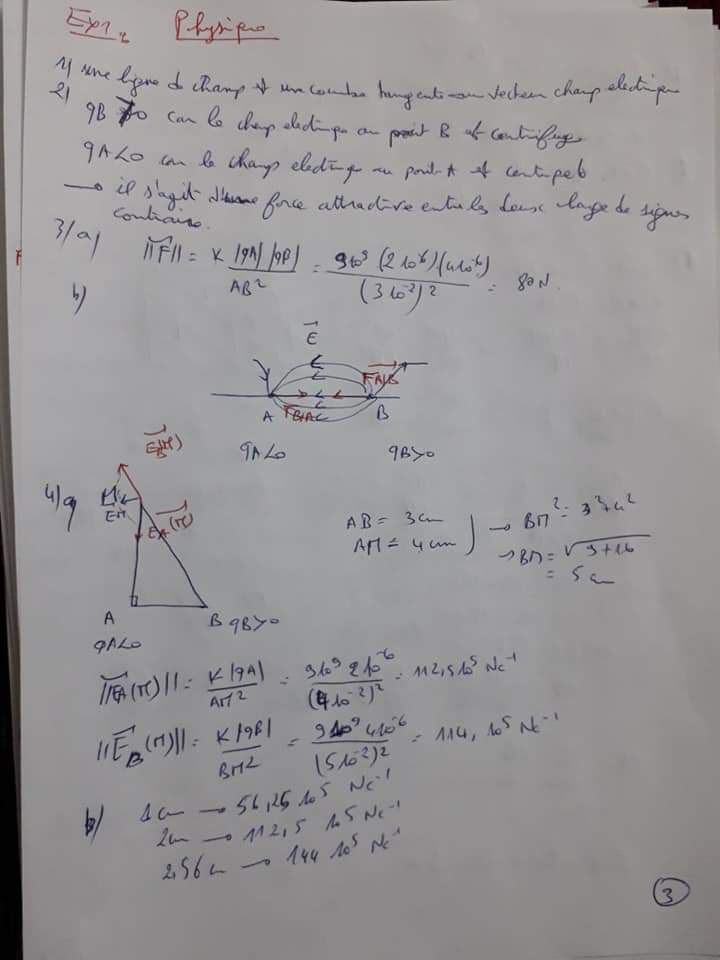 Ex1: Physique
1/ une ligne de champ et une courbe tangente au vecteur champ electrique
2/
qB >0 car le champ electrique au point B et centrifuge
qA<0 car le champ electrique au point A et centripete
→ il s'agit d'une force attractive entre les deux charge de signes
contraire.
3/a) ||F|| = K |qA| |qB| / AB² = 9 10⁹ (2 10⁻⁶)(4 10⁻⁶) / (3 10⁻²)² = 80 N.
b)
E
FA/B
A FB/A B
qA<0 qB>0
EB(M)
4/a) M
EM
EA(M)
AB = 3 cm → BM² = 3² + 4²
AM = 4 cm → BM = √9+16
= 5 cm
A B qB>0
qA<0
||EA(M)|| = K |qA| / AM² = 9 10⁹ 2 10⁻⁶ / (4 10⁻²)² = 112,5 10⁵ NC⁻¹
||EB(M)|| = K |qB| / BM² = 9 10⁹ 4 10⁻⁶ / (5 10⁻²)² = 114, 10⁵ NC⁻¹
b) 1 cm → 56,25 10⁵ NC⁻¹
2cm → 112,5 10⁵ NC⁻¹
2,56 cm → 144 10⁵ NC⁻¹
3